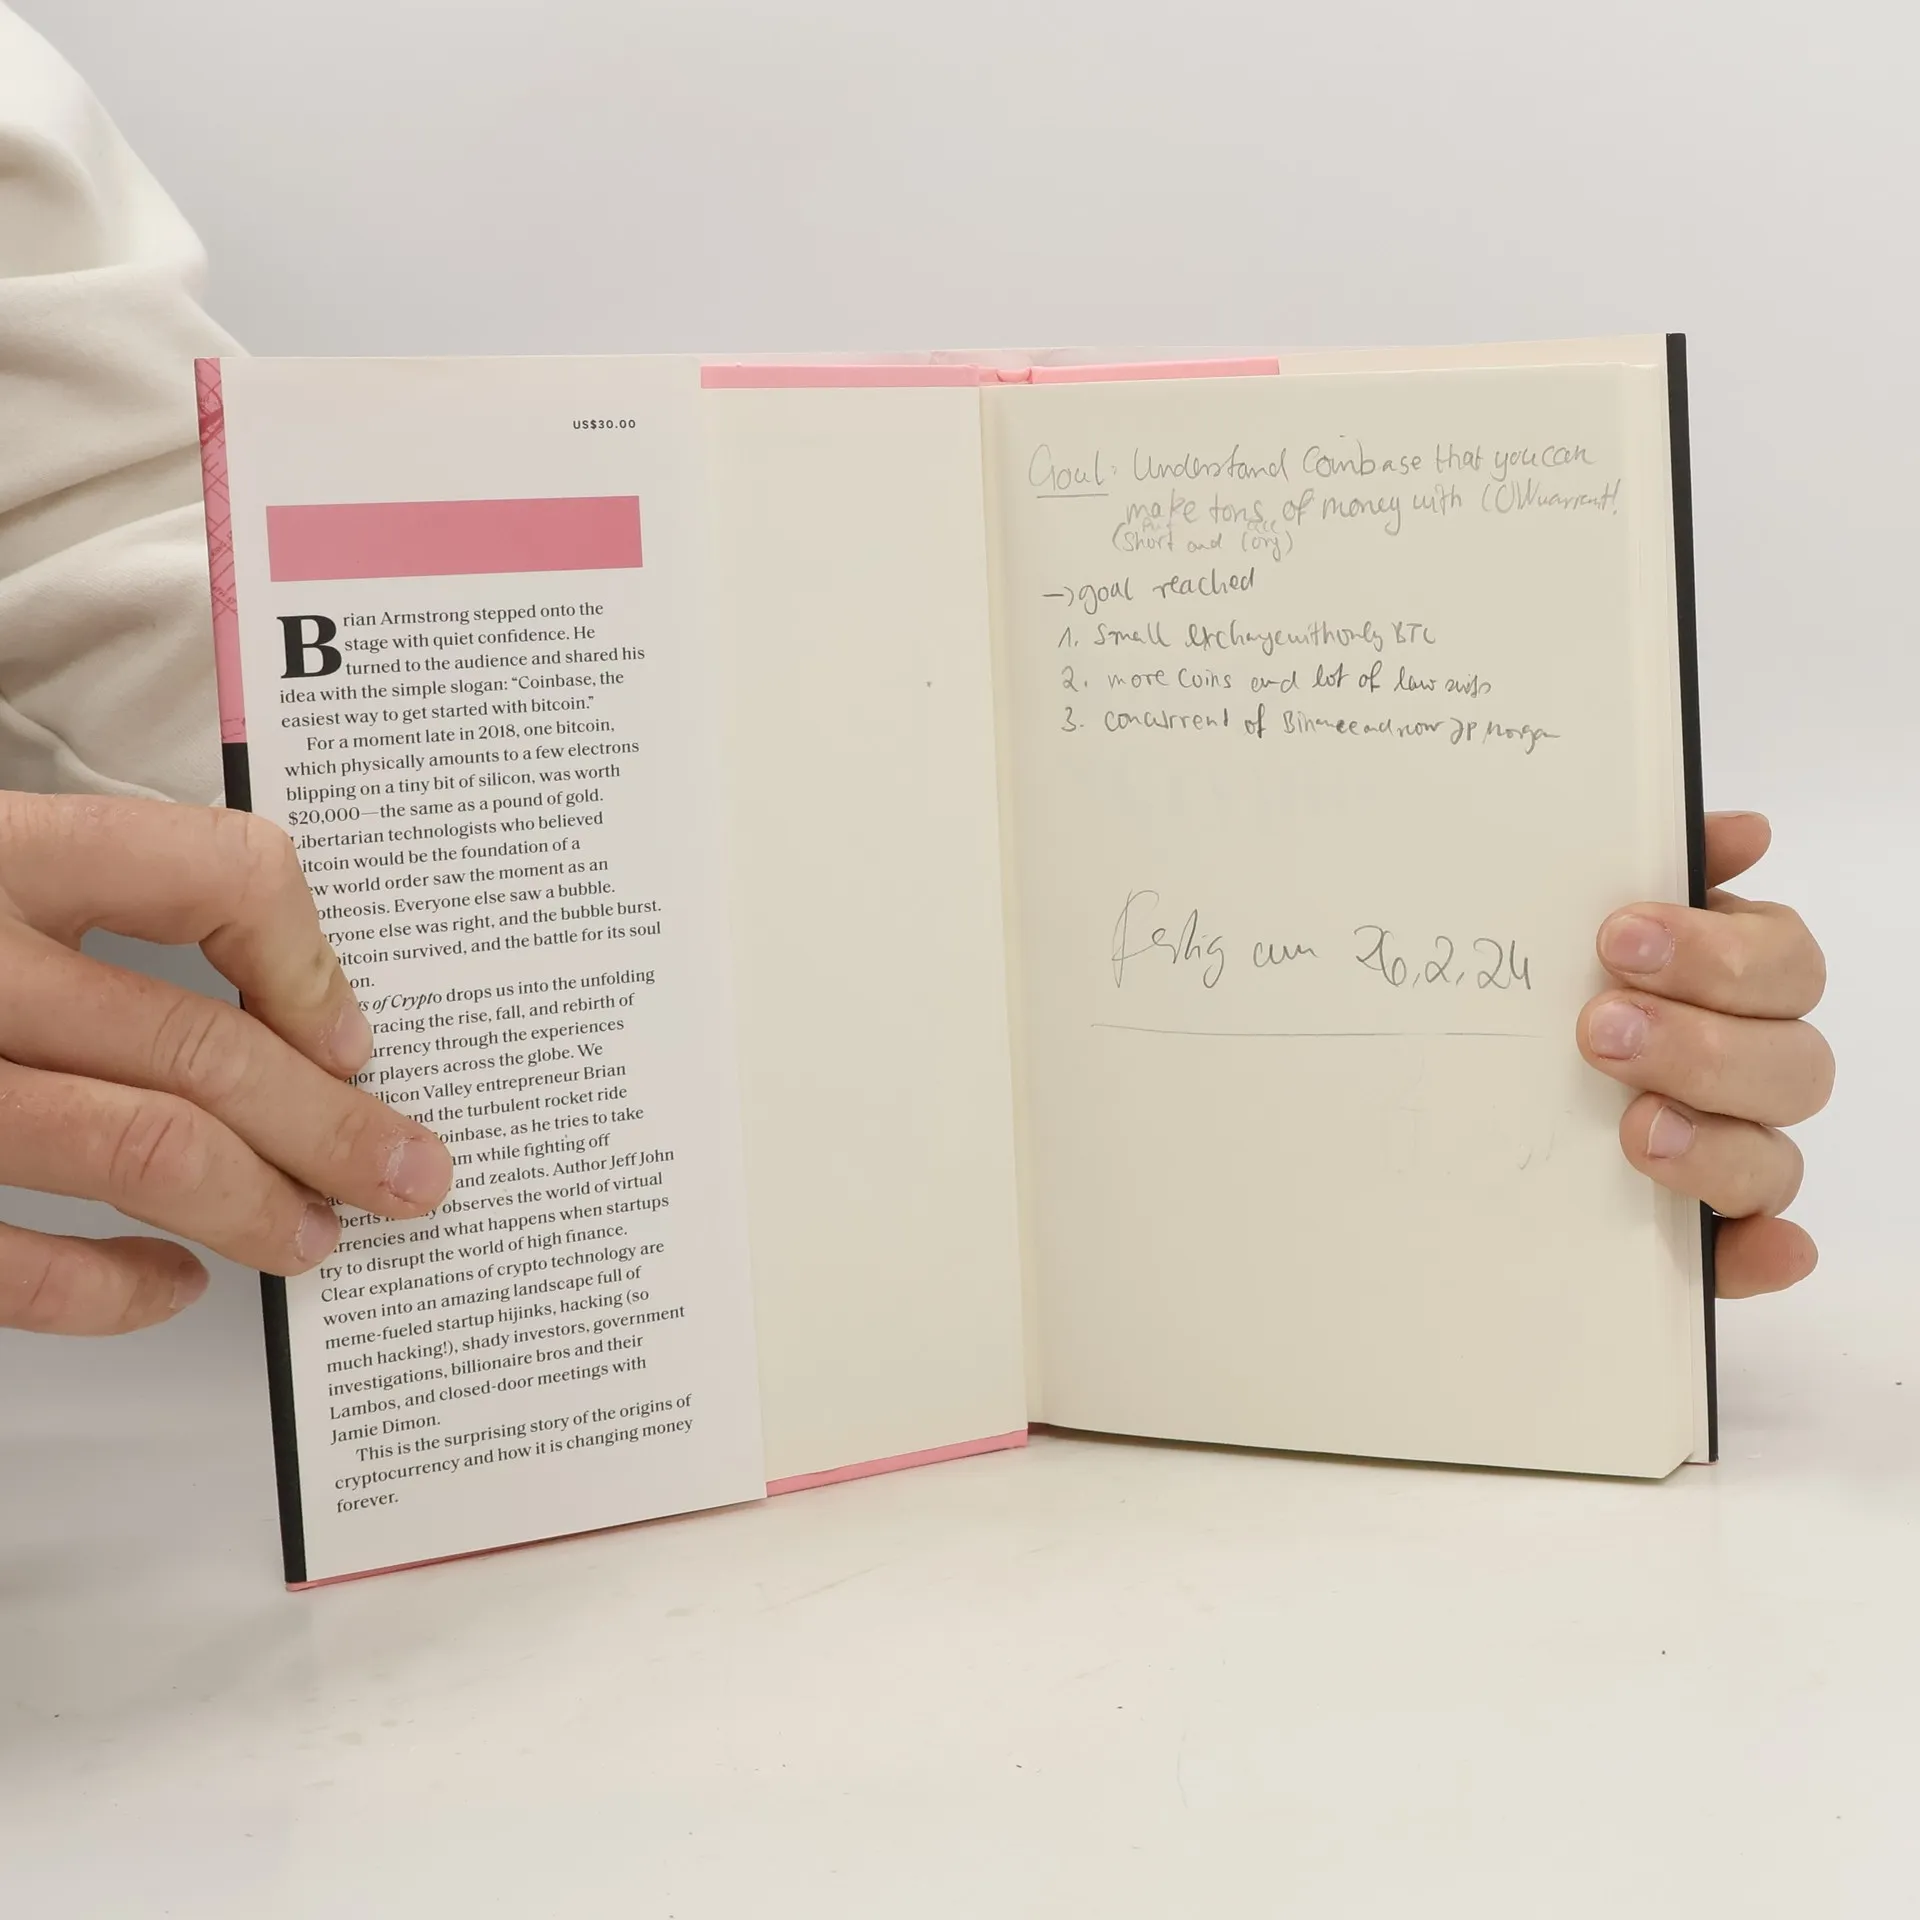 US$30.00
Brian Armstrong stepped onto the
stage with quiet confidence. He
turned to the audience and shared his
idea with the simple slogan: “Coinbase, the
easiest way to get started with bitcoin.”
For a moment late in 2018, one bitcoin,
which physically amounts to a few electrons
blipping on a tiny bit of silicon, was worth
$20,000—the same as a pound of gold.
Libertarian technologists who believed
itcoin would be the foundation of a
ew world order saw the moment as an
otheosis. Everyone else saw a bubble.
ryone else was right, and the bubble burst.
itcoin survived, and the battle for its soul
on.
gs of Crypto drops us into the unfolding
racing the rise, fall, and rebirth of
urrency through the experiences
ajor players across the globe. We
ilicon Valley entrepreneur Brian
and the turbulent rocket ride
oinbase, as he tries to take
am while fighting off
and zealots. Author Jeff John
berts observes the world of virtual
rrencies and what happens when startups
try to disrupt the world of high finance.
Clear explanations of crypto technology are
woven into an amazing landscape full of
meme-fueled startup hijinks, hacking (so
much hacking!), shady investors, government
investigations, billionaire bros and their
Lambos, and closed-door meetings with
Jamie Dimon.
This is the surprising story of the origins of
cryptocurrency and how it is changing money
forever.
Goal: Understand Coinbase that you can
make tons of money with
(short and long)
→ goal reached
1. Small exchange with only BTC
2. more Coins and lot of law suits
3. concurrent of Binance and now JP Morgan
Fertig am 26.2.24